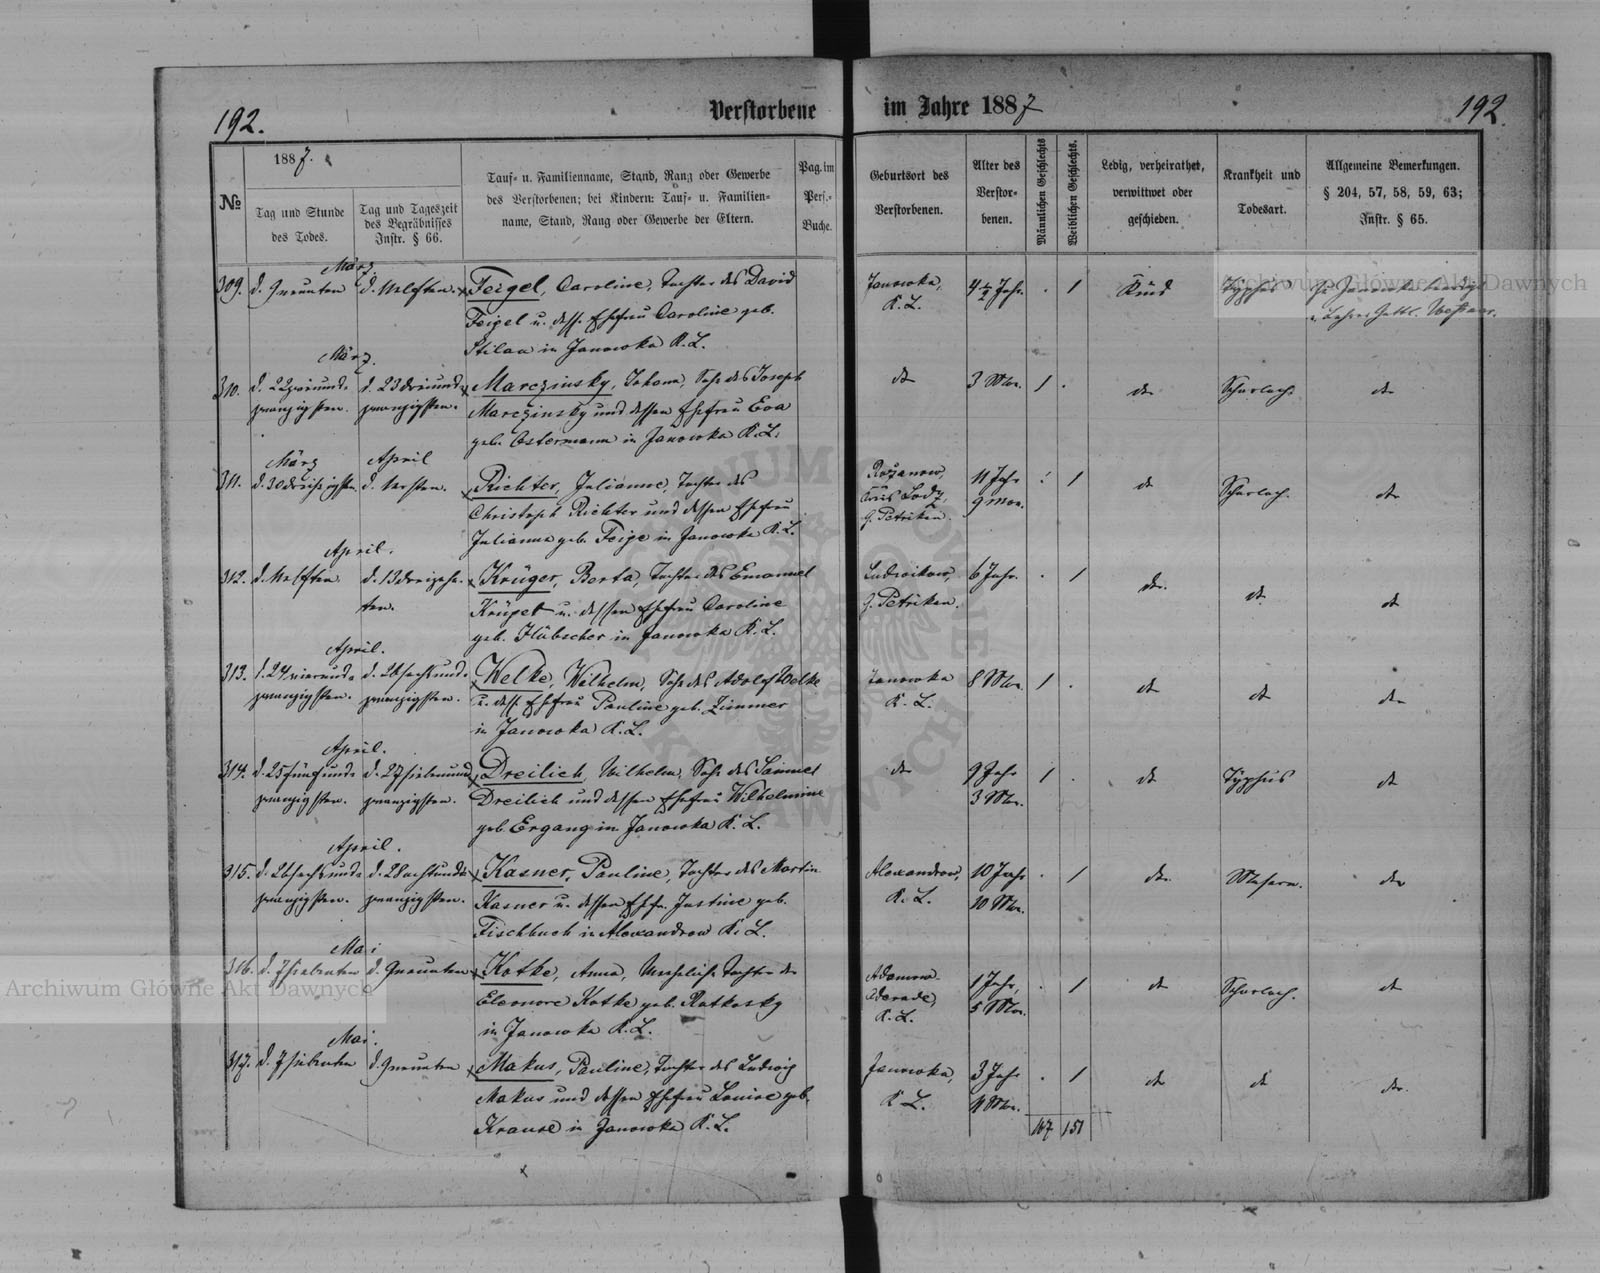 192.
Verstorbene
im Jahre 1887
192.
№
1887.
Tag und Stunde
des Todes.
Tag und Tageszeit
des Begräbnisses
Instr. § 66.
Tauf- u. Familienname, Stand, Rang oder Gewerbe
des Verstorbenen; bei Kindern: Tauf- u. Familien-
name, Stand, Rang oder Gewerbe der Eltern.
Pag. im
Pers.-
Buche.
Geburtsort des
Verstorbenen.
Alter des
Verstor-
benen.
Männlichen Geschlechts
Weiblichen Geschlechts.
Ledig, verheirathet,
verwittwet oder
geschieden.
Krankheit und
Todesart.
Allgemeine Bemerkungen.
§ 204, 57, 58, 59, 63;
Instr. § 65.
März
309. d. Neunten d. Elften. Feigel, Caroline, Tochter des David
Feigel u. dess. Ehefrau Caroline geb.
in Janowka K. L.
Janowka,
K. L.
4½ Jahr.
1
Kind
Typhus
März.
310. d. 22 zweiund-
zwanzigsten.
d. 23 dreiund-
zwanzigsten.
Marczinsky, Johann, Sohn des Joseph
Marczinsky und dessen Ehefrau Eva
geb. Ostermann in Janowka K. L.
do
3 Mon.
1
do
Scharlach.
do
März
April
311. d. 30 dreißigsten d. Ersten.
Richter, Julianne, Tochter des
Christoph Richter und dessen Ehefrau
Julianna geb. Feige in Janowka K. L.
Rożanow,
Kreis Lodz,
G. Petriken.
11 Jahr
9 Mon.
1
do
Scharlach.
do
April.
312. d. Elften
d. 13 dreizehn-
ten.
Krüger, Berta, Tochter des Emanuel
Krüger u. dessen Ehefrau Caroline
geb. Hübscher in Janowka K. L.
Ludwikow,
G. Petriken.
6 Jahr.
1
do.
do
do
April.
313. d. 24 vierund-
zwanzigsten.
d. 26 sechsund-
zwanzigsten.
Welke, Wilhelm, Sohn des Adolf Welke
u. dess. Ehefrau Pauline geb. Zimmer
in Janowka K. L.
Janowka
K. L.
8 Mon.
1
do
do
do
April.
314. d. 25 fünfund-
zwanzigsten.
d. 27 siebenund-
zwanzigsten.
Dreilich, Wilhelm, Sohn des Samuel
Dreilich und dessen Ehefrau Wilhelmine
geb. Ergang in Janowka K. L.
do
9 Jahr
3 Mon.
1
do
Typhus
do
April.
315. d. 26 sechsund-
zwanzigsten.
d. 28 achtund-
zwanzigsten.
Kasner, Pauline, Tochter des Martin
Kasner u. dessen Ehefr. Justine geb.
Fischbuch in Alexandrow K. L.
Alexandrow,
K. L.
10 Jahr
10 Mon.
1
do
Masern.
do
Mai
316. d. 7 siebenten d. 9 neunten
Kotke, Anna, Uneheliche Tochter der
Eleonore Kotke geb. Ratkosky
in Janowka K. L.
K. L.
1 Jahr,
5 Mon.
1
do
Scharlach.
do
Mai.
317. d. 7 siebenten d. 9 neunten
Makus, Pauline, Tochter des Ludwig
Makus und dessen Ehefrau Louise geb.
Krause in Janowka K. L.
Janowka,
K. L.
3 Jahr
4 Mon.
1
do
do
do.
167 151
Archiwum Główne Akt Dawnych
Archiwum Główne Akt Dawnych
ARCHIWUM GŁÓWNE AKT DAWNYCH